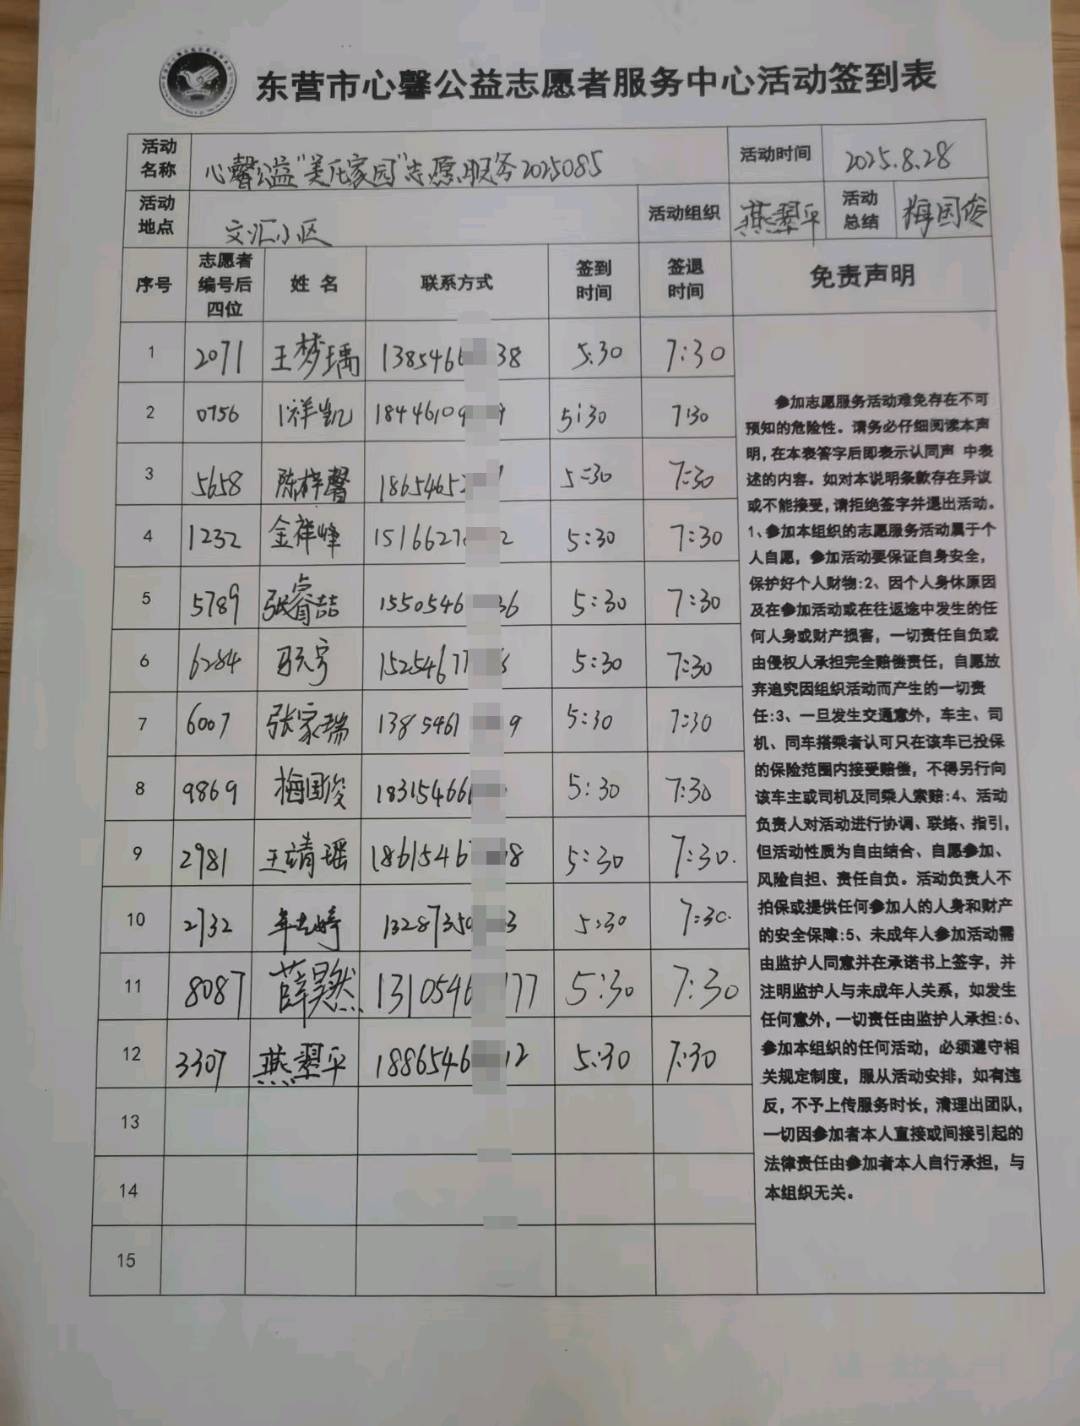 东营市心馨公益志愿者服务中心活动签到表
活动名称 心馨公益"美in家园"志愿服务2025085 活动时间 2025.8.28
活动地点 文汇小区 活动组织 燕翠平 活动总结 梅国俊
序号 志愿者编号后四位 姓名 联系方式 签到时间 签退时间 免责声明
1 2071 王梦瑀 1385466 38 5:30 7:30
2 0756 祥凯 18446109 9 5:30 7:30
3 5658 陈梓馨 1865465 5:30 7:30
4 1232 金祥峰 1516627 2 5:30 7:30
5 5789 张睿喆 1550546 36 5:30 7:30
6 6284 1525467 5:30 7:30
7 6007 张家瑞 1385461 9 5:30 7:30
8 9869 梅国俊 18315466 5:30 7:30
9 2981 王靖瑶 1861546 8 5:30 7:30.
10 2732 牟志婷 13287350 3 5:30 7:30.
11 8087 薛昊然 1310546 77 5:30 7:30
12 3307 燕翠平 1886546 12 5:30 7:30
13
14
15
参加志愿服务活动难免存在不可
预知的危险性。请务必仔细阅读本声
明,在本表签字后即表示认同声 中表
述的内容。如对本说明条款存在异议
或不能接受,请拒绝签字并退出活动。
1、参加本组织的志愿服务活动属于个
人自愿,参加活动要保证自身安全,
保护好个人财物:2、因个人身体原因
及在参加活动或在往返途中发生的任
何人身或财产损害,一切责任自负或
由侵权人承担完全赔偿责任,自愿放
弃追究因组织活动而产生的一切责
任:3、一旦发生交通意外,车主、司
机、同车搭乘者认可只在该车已投保
的保险范围内接受赔偿,不得另行向
该车主或司机及同乘人索赔:4、活动
负责人对活动进行协调、联络、指引,
但活动性质为自由结合、自愿参加、
风险自担、责任自负。活动负责人不
担保或提供任何参加人的人身和财产
的安全保障:5、未成年人参加活动需
由监护人同意并在承诺书上签字,并
注明监护人与未成年人关系,如发生
任何意外,一切责任由监护人承担:6、
参加本组织的任何活动,必须遵守相
关规定制度,服从活动安排,如有违
反,不予上传服务时长,清理出团队,
一切因参加者本人直接或间接引起的
法律责任由参加者本人自行承担,与
本组织无关。